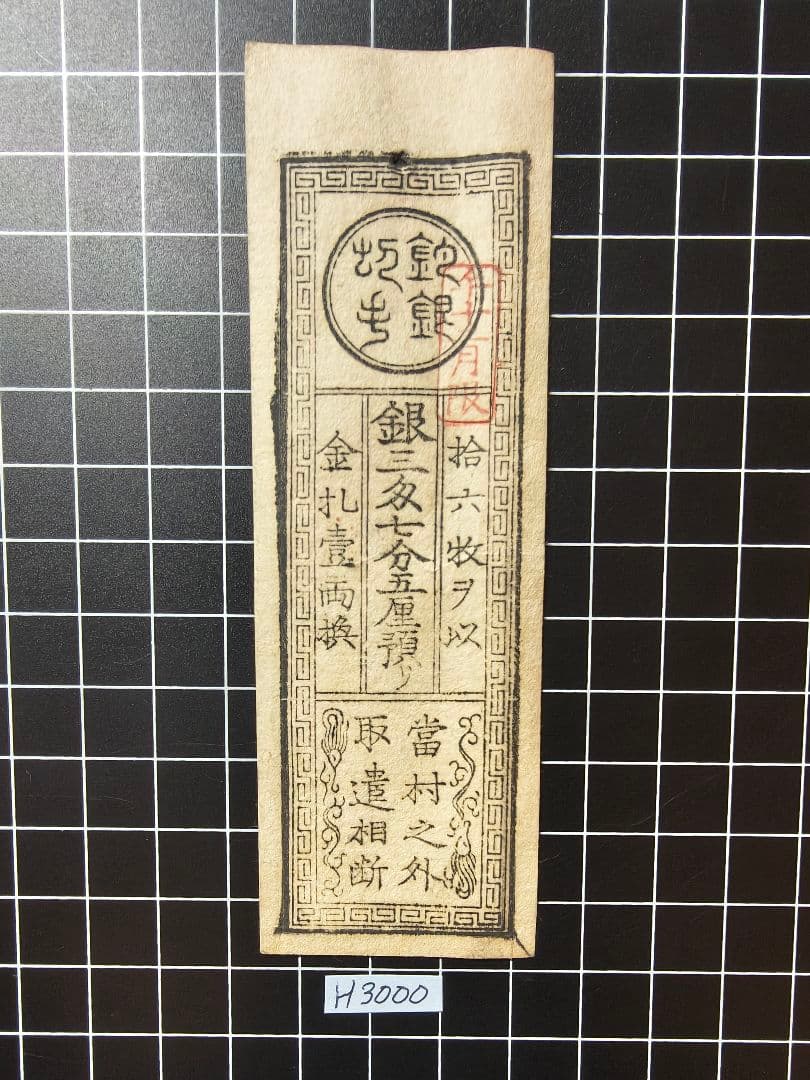 釣銀
切手
月限
拾六枚ヲ以
銀三匁七分五厘預り
金札壹両換
當村之外
取遣相断
H3000